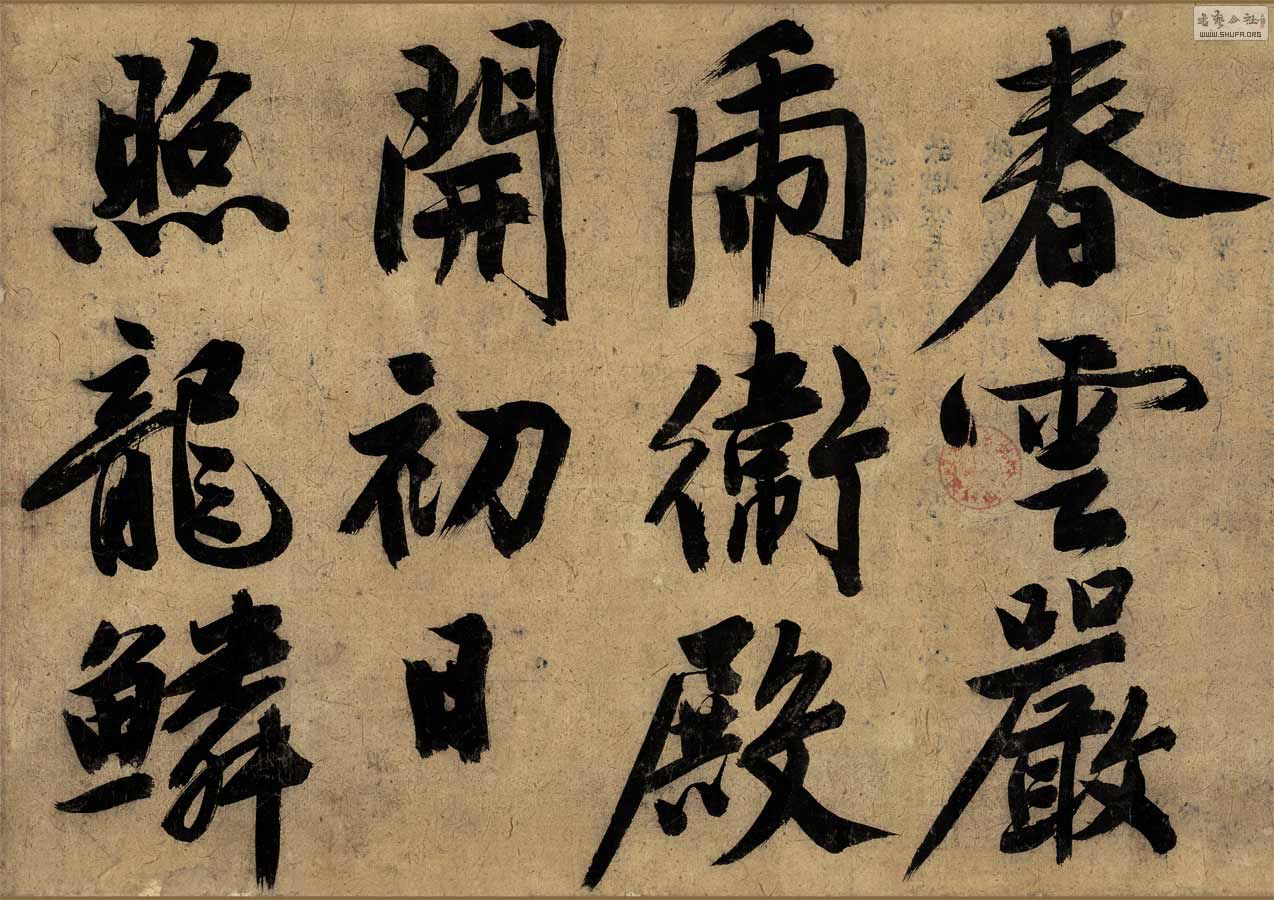 春雲嚴
衛殿
開初日
照龍鱗
书艺公社
WWW.SHUFA.ORG